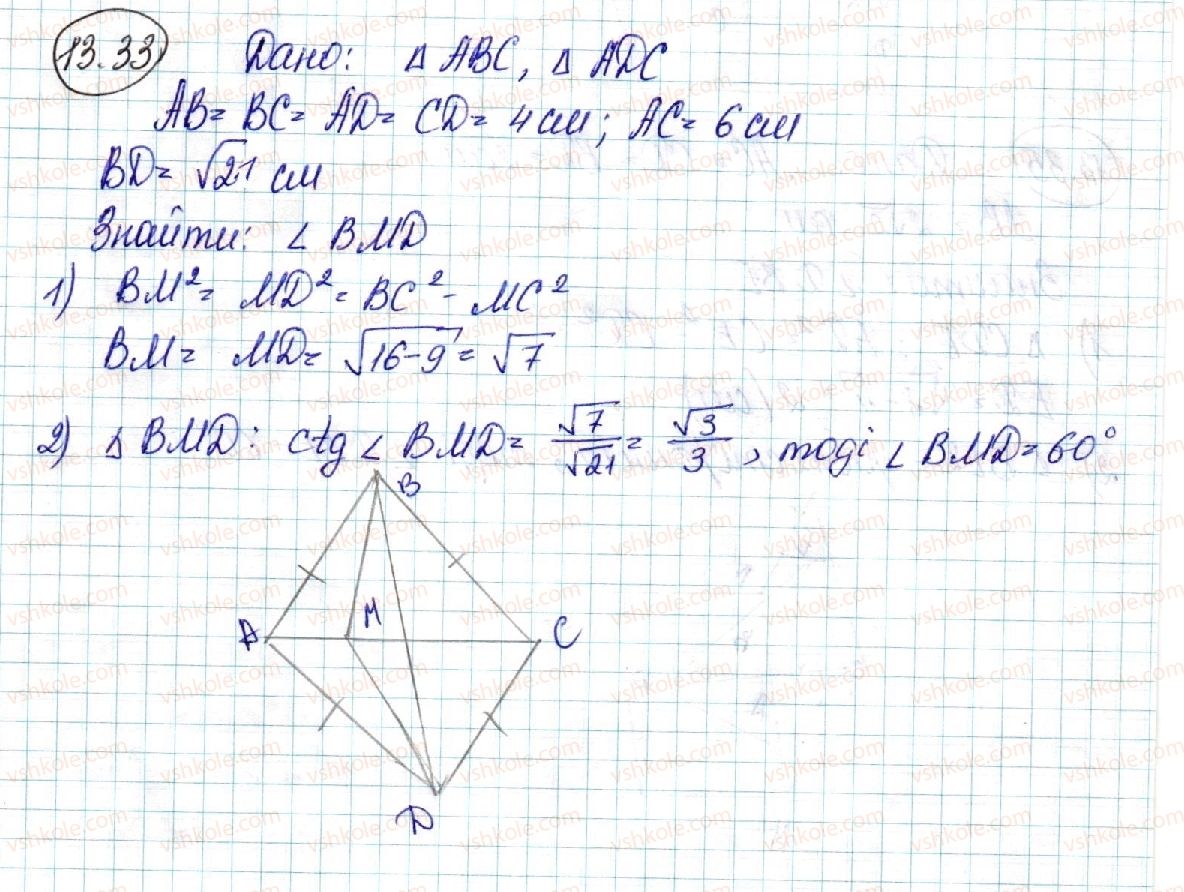 13.33 Дано: Δ ABC, Δ ADC
AB = BC = AD = CD = 4 см; AC = 6 см
BD = √21 см
Знайти: ∠ BMD
1) BM² = MD² = BC² - MC²
BM = MD = √16-9 = √7
2) Δ BMD: ctg ∠ BMD = √7/√21 = √3/3, тоді ∠ BMD = 60°
B
A M C
D
vshkole.com